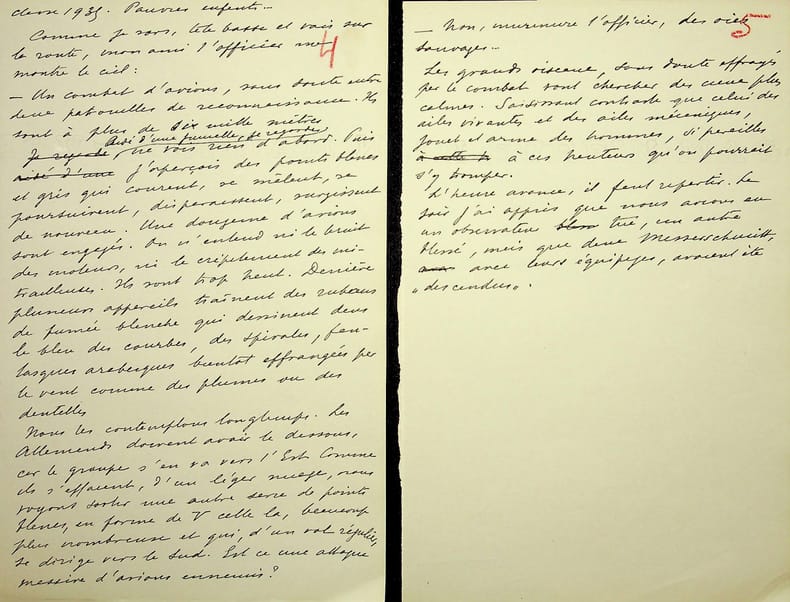 classe 1935. Pauvres enfants...
Comme je sors, tête basse et vais sur
la route, mon ami l'officier me
4
montre le ciel :
— Un combat d'avions, sans doute entre
deux patrouilles de reconnaissance. Ils
sont à plus de dix mille mètres
Aidé d'une jumelle, je regarde
Je regarde, ne vois rien d'abord. Puis
aidé d'une j'aperçois des points blancs
et gris qui courent, se mêlent, se
poursuivent, disparaissent, surgissent
de nouveau. Une douzaine d'avions
sont engagés. On n'entend ni le bruit
des moteurs, ni le crépitement des mi-
trailleuses. Ils sont trop haut. Derrière
plusieurs appareils traînent des rubans
de fumée blanche qui dessinent dans
le bleu des courbes, des spirales, fan-
tasques arabesques bientôt effrangées par
le vent comme des plumes ou des
dentelles
Nous les contemplons longtemps. Les
Allemands doivent avoir le dessous,
car le groupe s'en va vers l'Est. Comme
ils s'effacent, d'un léger nuage, nous
voyons sortir une autre série de points
blancs, en forme de V celle là, beaucoup
plus nombreuse et qui, d'un vol régulier,
se dirige vers le Sud. Est ce une attaque
massive d'avions ennemis?
— Non, murmure l'officier, des oies
5
sauvages...
Les grands oiseaux, sans doute effrayés
par le combat vont chercher des cieux plus
calmes. Saisissant contraste que celui des
ailes vivantes et des ailes mécaniques,
jouet et arme des hommes, si pareilles
à cette h à ces hauteurs qu'on pourrait
s'y tromper.
L'heure avance, il faut repartir. Le
soir j'ai appris que nous avions eu
un observateur tué, un autre
blessé, mais que deux Messerschmitt,
avec leurs équipages, avaient été
„descendus„.